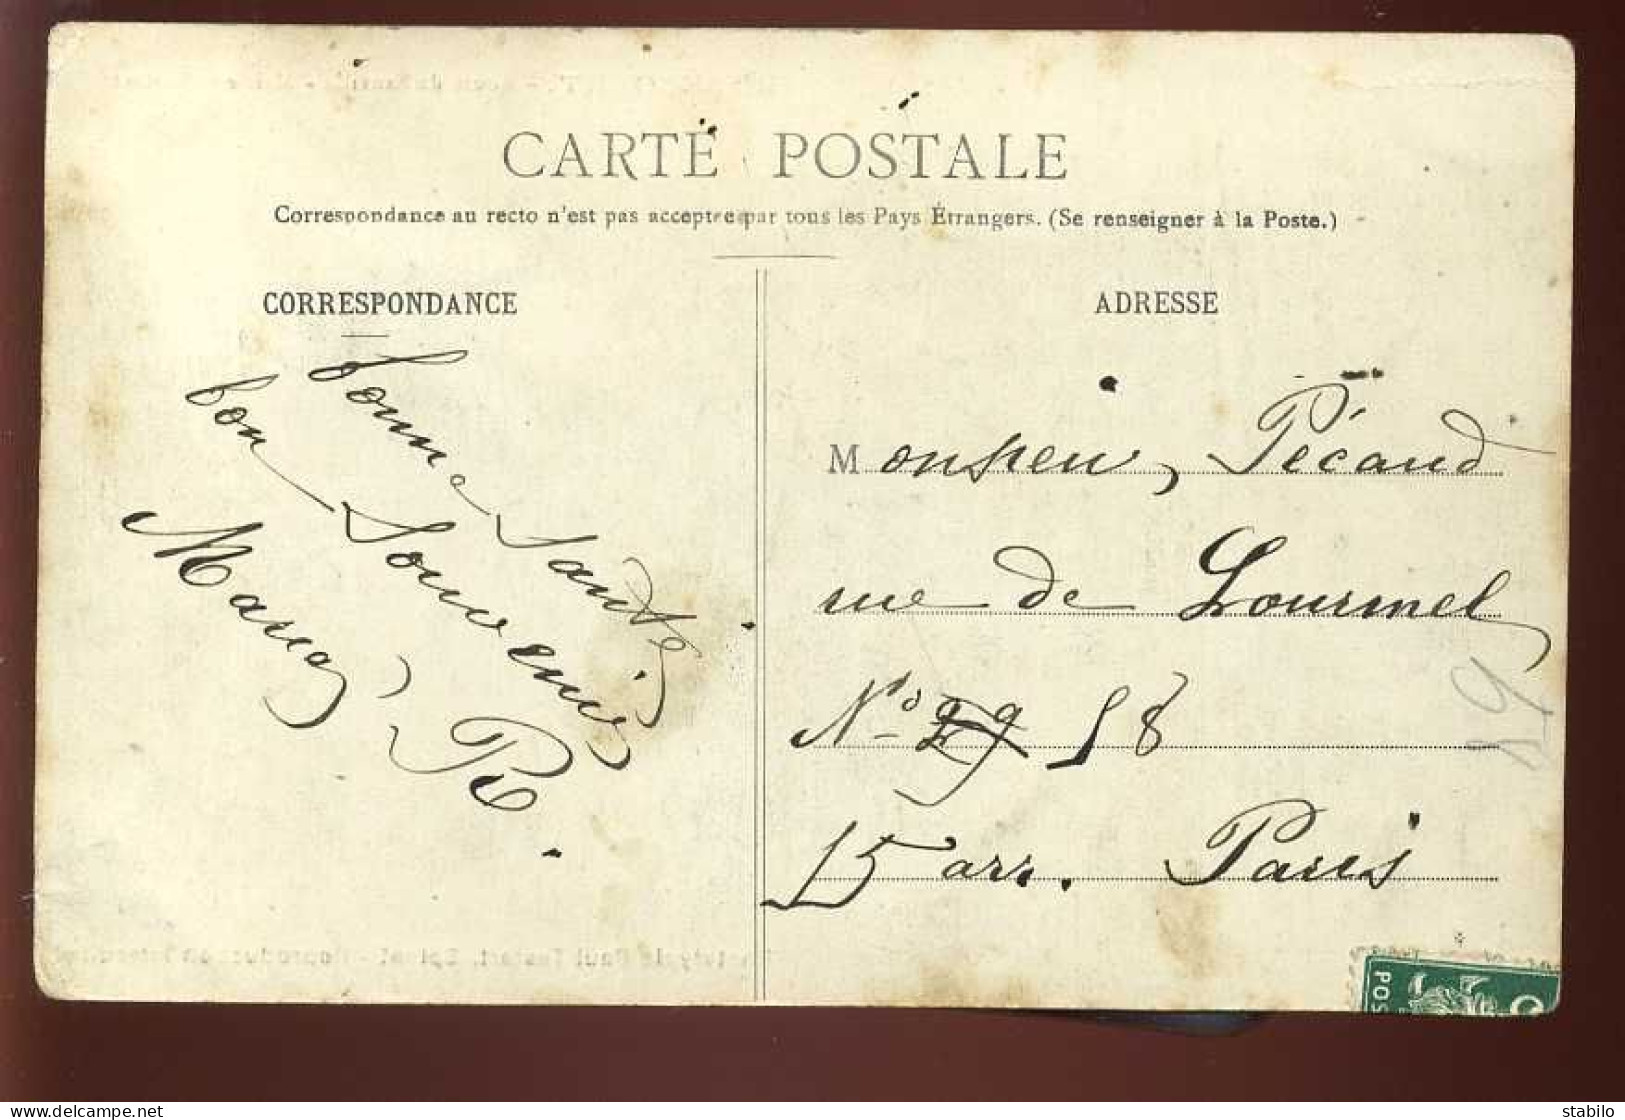 CARTE POSTALE
Correspondance au recto n'est pas acceptée par tous les Pays Étrangers. (Se renseigner à la Poste.)
CORRESPONDANCE
bonne santé
bon souvenir
R.
ADRESSE
Monsieur Pécaud
rue de Lourmel
N° 29 58
15 arr. Paris
Paul Testart, Epinal - Reproduction interdite
POS
delcampe.net
stabilo